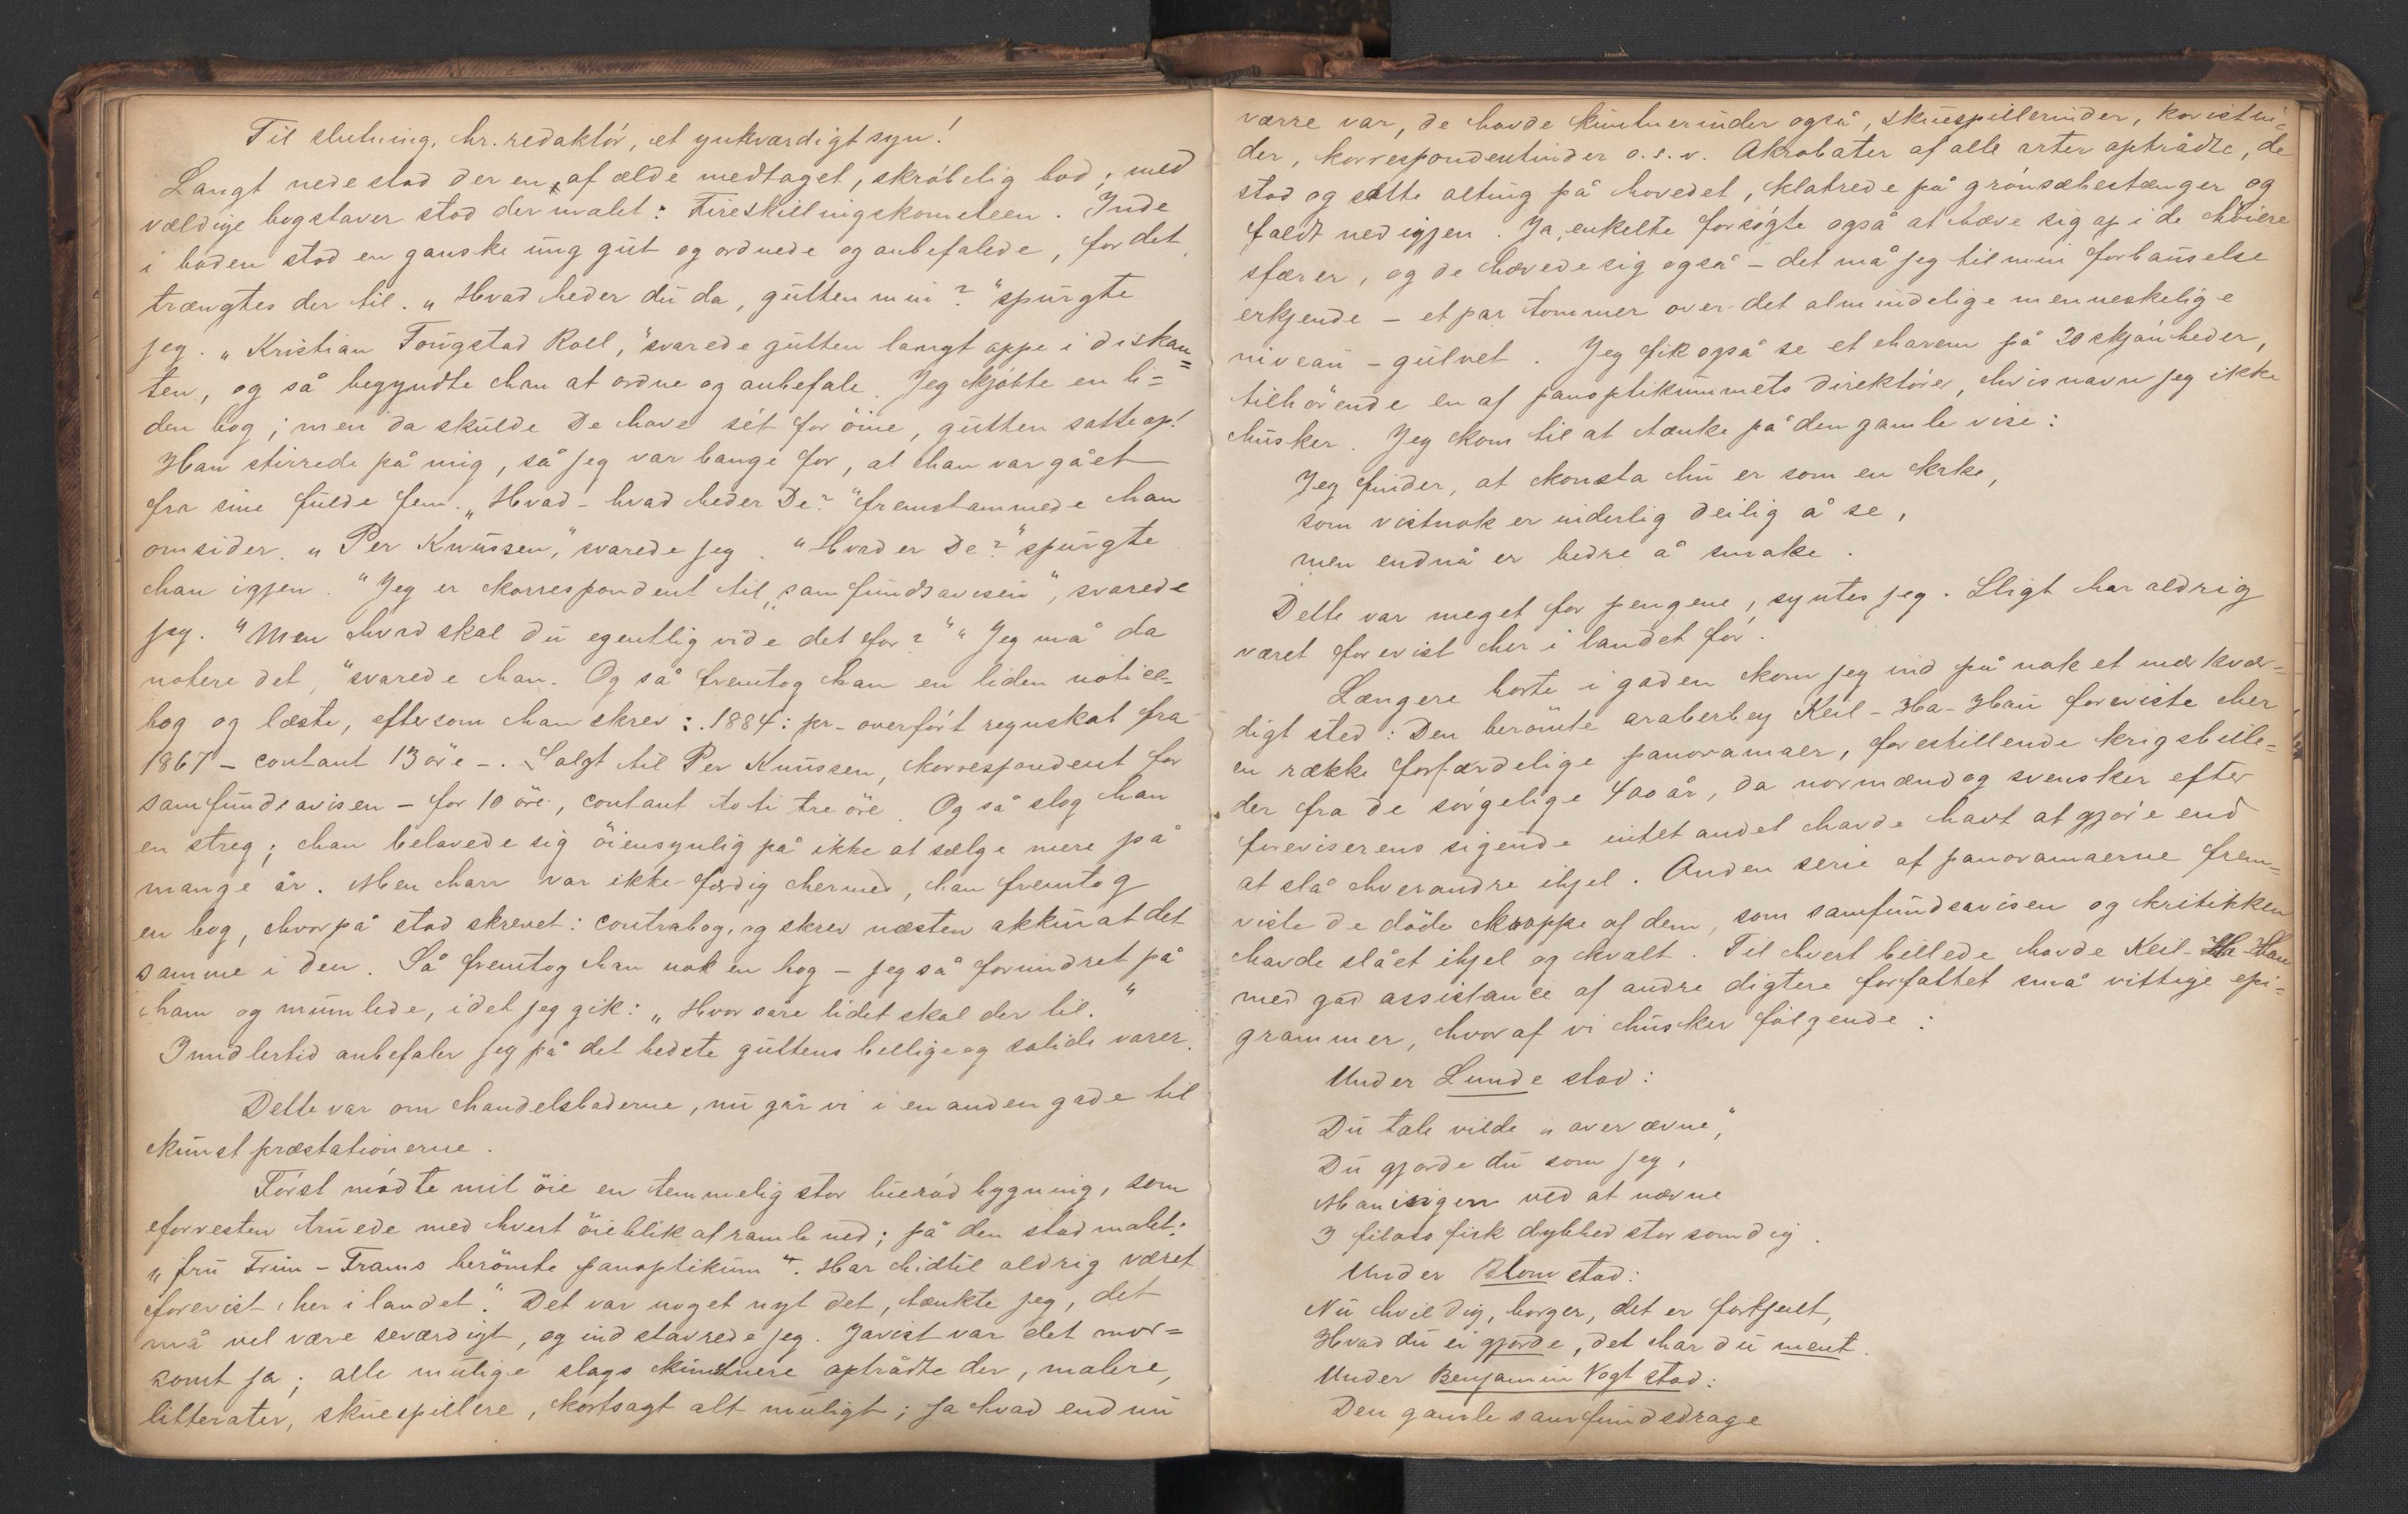 Til slutning, hr. redaktör, et ynkværdigt syn!
Langt nede stod der en, af ælde medtaget, skröbelig bod; med
vældige bogstaver stod der malet: Fireskillingskometeen. Inde
i boden stod en ganske ung gut og ordnede og anbefalede, for det
trængtes der til. „Hvad heder du da, gutten min?“ spurgte
jeg. „Kristian Fougstad Roll,“ svarede gutten langt oppe i diskan=
ten, og så begyndte han at ordne og anbefale. Jeg kjøbte en li=
den bog; men da skulde De have sét for öine, gutten satte op!
Han stirrede på mig, så jeg var bange for, at han var gået
fra sine fulde fem. „Hvad – hvad heder De?“ fremstammede han
omsider. „Per Knussen,“ svarede jeg. „Hvad er De?“ spurgte
han igjen. “Jeg er korrespondent til „samfundsavisen“, svarede
jeg. “Men hvad skal du egentlig vide det for?“ “Jeg må da
notere det,“ svarede han. Og så fremtog han en liden notice=
bog og læste, eftersom han skrev: 1884: pr. overfört regnskab fra
1867 – contant 13 öre –. Solgt til Per Knussen, korrespondent for
samfundsavisen – for 10 öre, contant to ti tre öre. Og så slog han
en streg; han belavede sig öiensynlig på ikke at sælge mere på
mange år. Men han var ikke færdig hermed, han fremtog
en bog, hvorpå stod skrevet: contrabog, og skrev næsten akkurat det
samme i den. Så fremtog han nok en bog – jeg så forundret på
ham og mumlede, idet jeg gik: „Hvor såre lidet skal der til.“
Imidlertid anbefaler jeg på det bedste guttens bellige og solide varer.
Dette var om handelsboderne, nu går vi i en anden gade til
kunstpræstationerne.
Först mödte mit öie en temmelig stor bygning, som
forresten truede med hvert öieblik at ramle ned; på den stod malet:
„fru Frim-Frams berömte panoptikum“. Har hidtil aldrig været
forevist her i landet.“ Det var noget nyt det, tænkte jeg, det
må vel være seværdigt, og ind stavrede jeg. Javist var det mor=
somt ja; alle mulige slags kunstnere optrådte der, malere,
litterater, skuespillere, kortsagt alt muligt; ja hvad endnu
værre var, de havde kunstnerinder også, skuespillerinder, koristin=
der, korrespondentinder o.s.v. Akrobater af alle arter optrådte, de
stod og satte alting på hovedet, klatrede på grönsæbestænger og
faldt ned igjen. Ja, enkelte forsögte også at hæve sig op i de höiere
sfærer, og de hævede sig også – det må jeg til min forbauselse
erkjende – et par tommer over det almindelige menneskelige
niveau – gulvet. Jeg fik også se et harem på 20 skjönheder,
tilhörende en af panoptikummets direktörer, hvis navn jeg ikke
husker. Jeg kom til at tænke på den gamle vise:
Jeg finder, at konsta hu er som en kake,
som vistnok er inderlig deilig å se,
men endnå er bedre å smake.
Dette var meget for pengene, syntes jeg. Sligt har aldrig
været forevist her i landet för.
Længere borte i gaden kom jeg ind på nok et mærkvær=
digt sted: Den berömte araberbey Keil-Ha-Hau foreviste her
en række forfærdelige panoramaer, forestillende krigsbille=
der fra de sörgelige 400 år, da normænd og svensker efter
foreviserens sigende intet andet havde havt at gjöre end
at slå hverandre ihjel. Anden serie af panoramaerne frem=
viste de döde kroppe af dem, som samfundsavisen og kritikken
havde slået ihjel og kvalt. Til hvert billede havde Keil-Ha-Hau
med god assistance af andre digtere forfattet små vittige epi=
grammer, hvoraf vi husker fölgende:
Under Lunde stod:
Du tale vilde „over ævne“,
Du gjorde du som jeg,
Man ingen ved at nævne
I filosofisk dybhed stor som dig.
Under Blom stod:
Nu hvil dig, borger, det er fortjent,
Hvad du ei gjorde, det har du ment.
Under Benjamin Vogt stod:
Den gamle samfundsdrage